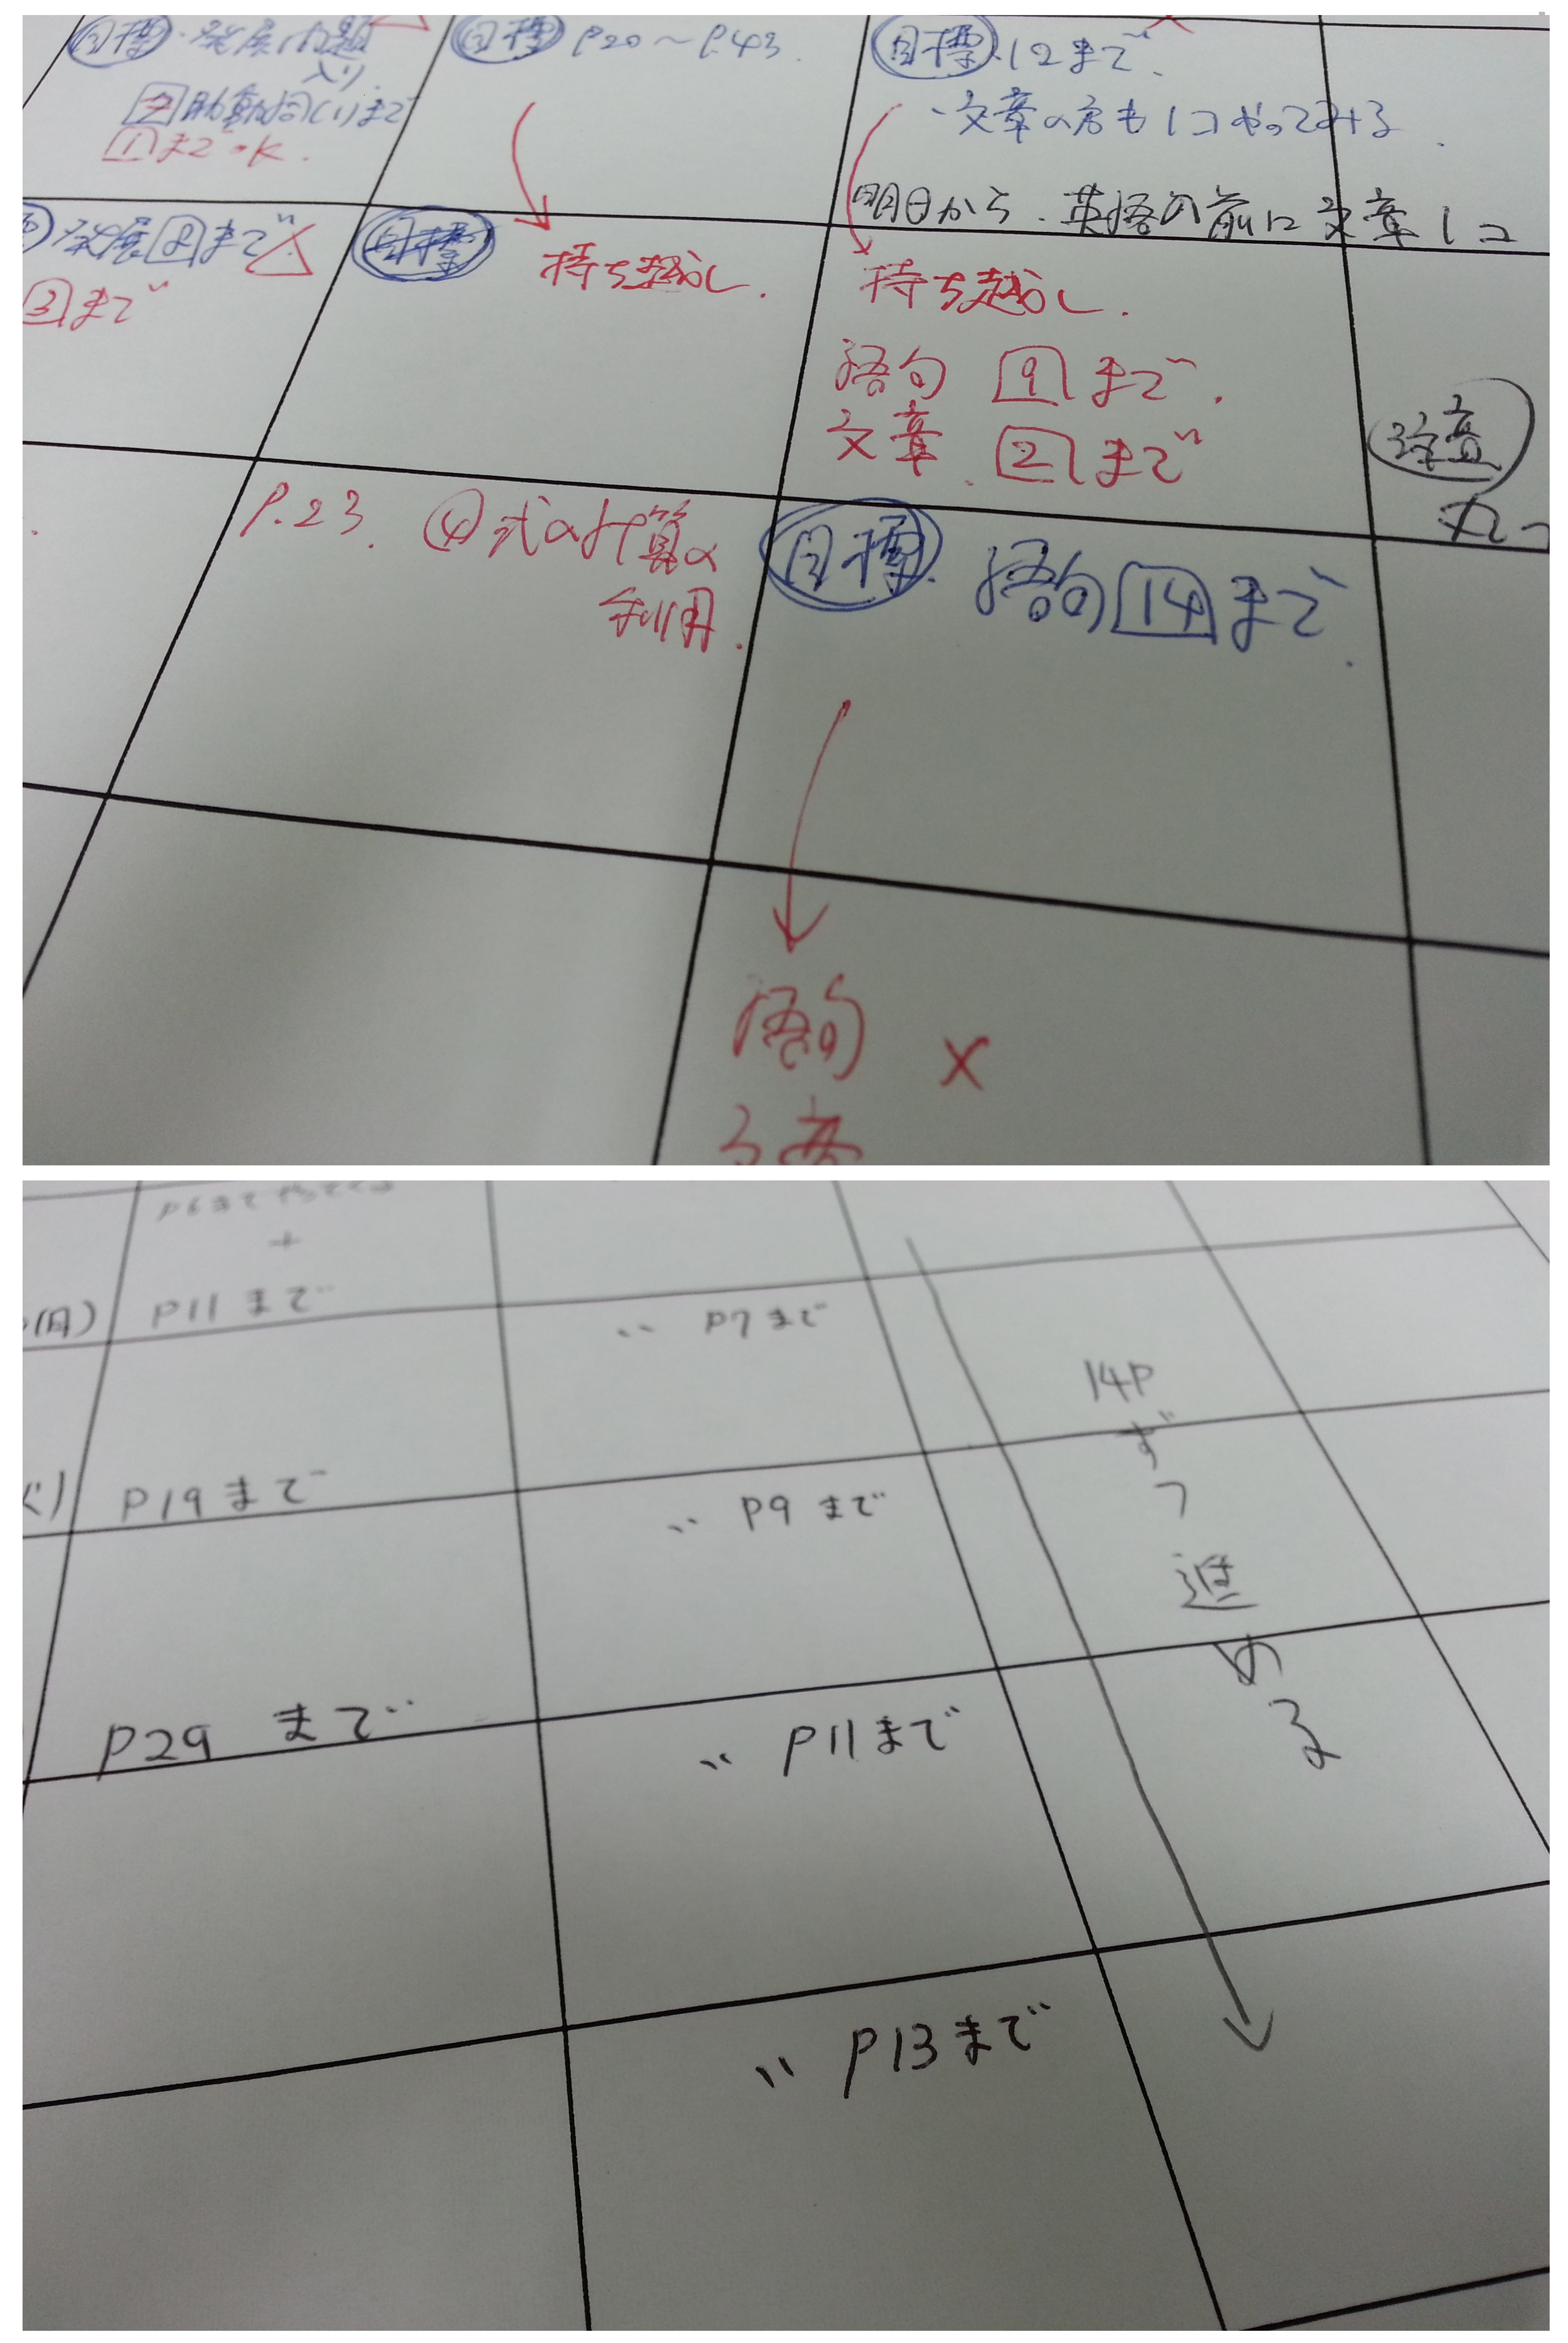 目標・発展問題
入り
2助動詞(1)まで
1までOK.
目標 P20〜P.43.
目標.12まで.
・文章の方も1コやってみる.
明日から.英語の前に文章1コ
発展2まで△
3まで
目標 持ち越し.
持ち越し.
語句 9まで.
文章. 2まで
P.23. ④式の計算の
利用.
目標. 語句14まで.
語句 ×
文章
P6までやって
+
P11まで
(月)
〃 P7まで
14Pずつ進める
P19まで
〃 P9まで
P29まで
〃 P11まで
〃 P13まで